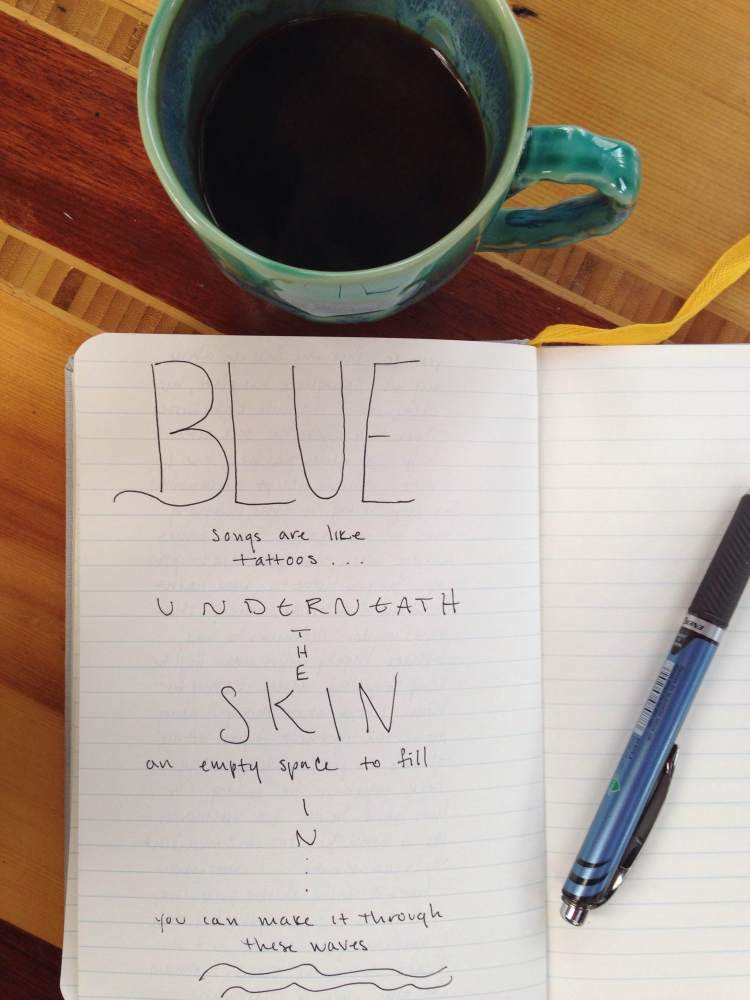 BLUE
songs are like
tattoos...
UNDERNEATH
T
H
E
SKIN
an empty space to fill
I
N
:
.
you can make it through
these waves